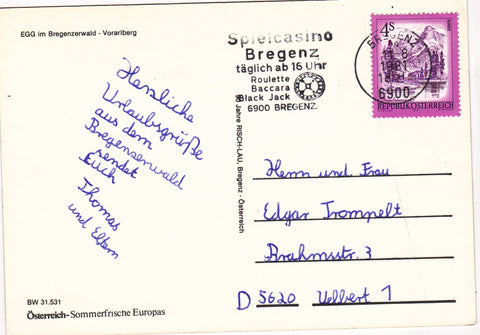 EGG im Bregenzerwald - Vorarlberg
Herzliche
Urlaubsgrüße
aus dem
Bregenzerwald
sendet
Euch
Thomas
und Eltern
BW 31.531
Österreich-Sommerfrische Europas
50 Jahre RISCH-LAU, Bregenz - Österreich
Spielcasino
Bregenz
täglich ab 16 Uhr
Roulette
Baccara
Black Jack
6900 BREGENZ
BREGENZ
1981
6900
4S
REPUBLIK ÖSTERREICH
Herrn und Frau
Edgar Trompelt
Brahmsstr. 3
D 5620 Velbert 1